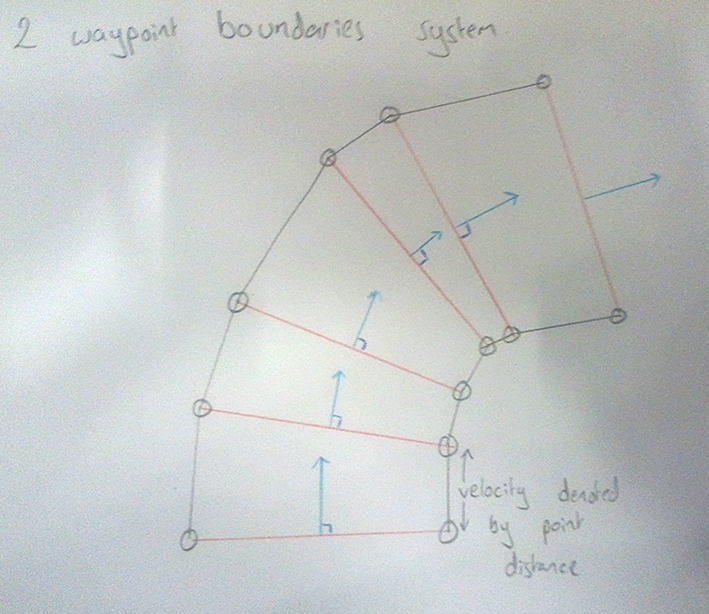 2 waypoint boundaries system.
velocity denoted
by point
distance